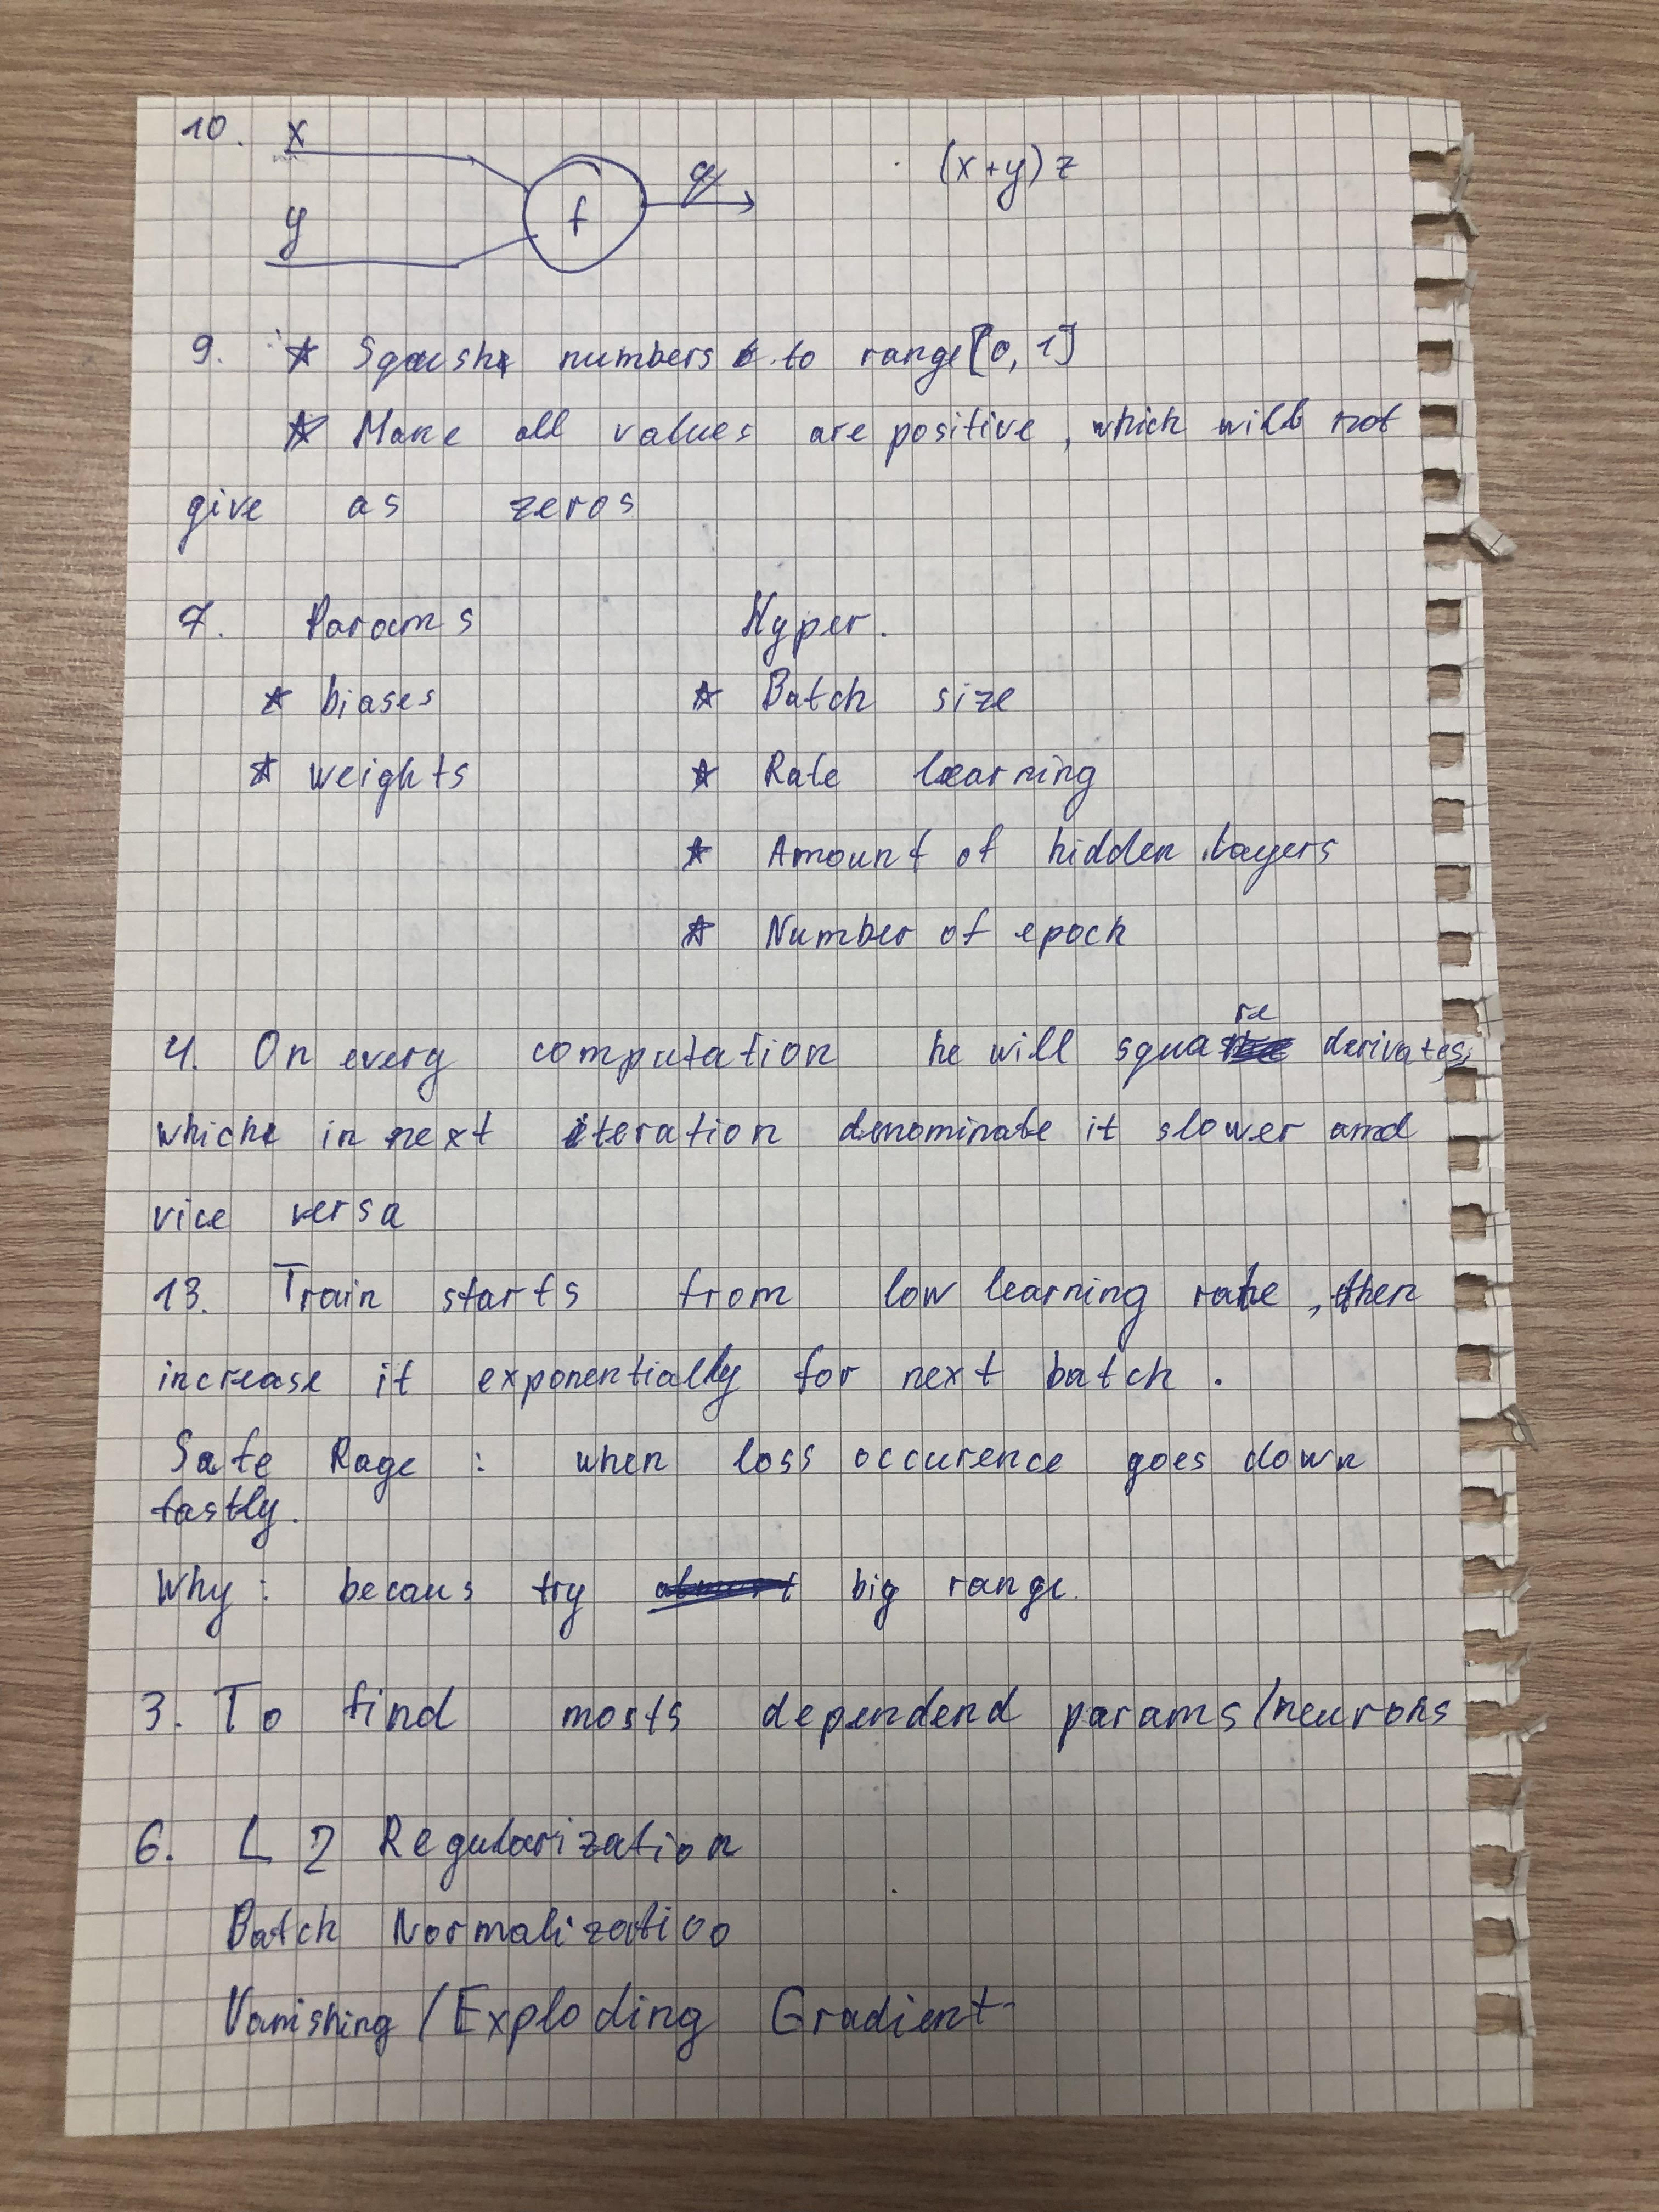 10. x
y f (x+y) z
9. * Sqush numbers to range [0, 1]
* Make all values are positive, which will not
give as zeros
7. Params Hyper.
* biases * Batch size
* weights * Rate learning
* Amount of hidden layers
* Number of epoch
4. On every computation he will square derivates,
which in next iteration denominate it slower and
vice versa
13. Train starts from low learning rate, then
increase it exponentially for next batch.
Safe Rage : when loss occurence goes down
fastly.
Why : becaus try big range.
3. To find mosts dependend params/neurons
6. L2 Regularization
Batch Normalization
Vanishing / Exploding Gradient